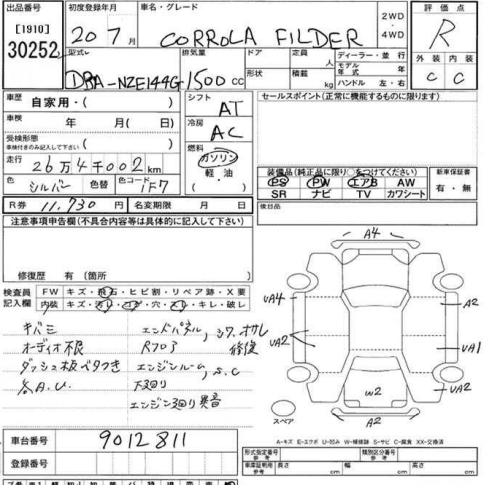 出品番号 [1910] 30252
初度登録年月 20 7月
車名・グレード CORROLA FILDER
2WD ・ 4WD
評価点 R
外装 C 内装 C
型式 DBA-NZE144G
排気量 1500 cc
ドア 形状
定員 人 積載 kg
ディーラー・並行
モデル年式 年
ハンドル 左・右
車歴 自家用・( )
車検 年 月( 日)
受検形態 車検付きのみ記入して下さい ( )
走行 26万4千002 km
色 シルバー 色替 色コード 1F7
シフト AT
冷房 AC
燃料 ガソリン 軽・油
セールスポイント(正常に機能するものに限ります)
装備品(純正品に限り○をつけてください)
PS PW エアB AW
SR ナビ TV カワシート
新車保証書 有・無
R券 11,730 円 名変期限 月 日
後日品
注意事項申告欄(不具合内容等は具体的に記入して下さい)
修復歴 有 (箇所
検査員記入欄
FW キズ・飛石・ヒビ割・リペア跡・X要
内装 キズ・汚れ・コゲ・穴・スレ・キレ・破レ
キバミ
オーディオ不良
ダッシュ板ベタつき
各A.U.
エンドパネル, シワ.オサレ
Rフロア 修復
エンジンルーム, S.C
下回り
エンジン回り異音
A4
UA4
A2
UA2
UA1
UA2
W2
A2
スペア
A-キズ E-エクボ U-凹み W-補修跡 S-サビ C-腐食 XX-交換済
車台番号 9012811
登録番号
形式指定番号 参考
類別区分番号 参考
車庫証明用 参考 長さ cm 幅 cm 高さ cm